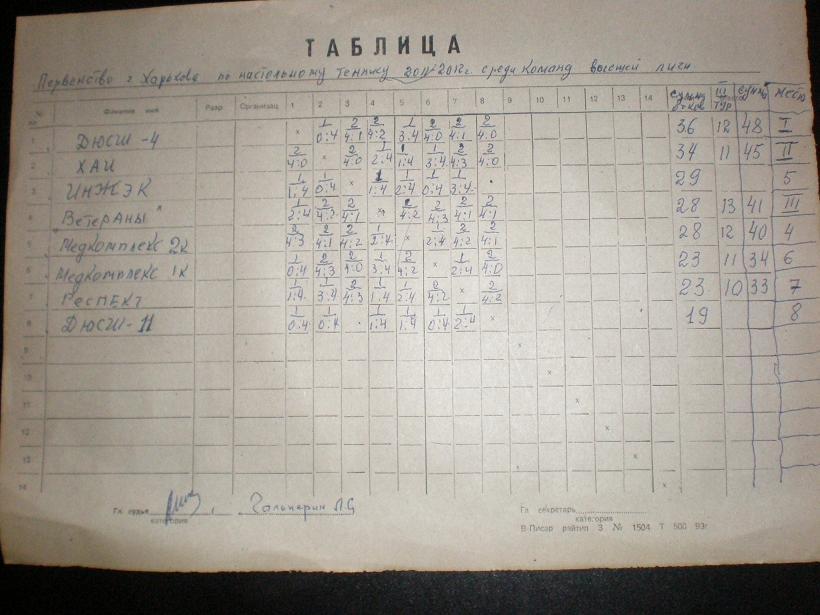 ТАБЛИЦА
Первенство г. Харькова по настольному теннису 2011-2012г. среди команд высшей лиги.
№ Фамилия имя Разр. Организац. 1 2 3 4 5 6 7 8 9 10 11 12 13 14 сумма очков III тур сумма место
1 ДЮСШ-4 x 1/0:4 2/4:1 2/4:2 1/3:4 2/4:0 2/4:1 2/4:0 36 12 48 I
2 ХАИ 2/4:0 x 2/4:0 1/2:4 1/1:4 1/3:4 2/4:3 2/4:0 34 11 45 II
3 ИНЖЭК 1/1:4 1/0:4 x 1/1:4 1/2:4 1/0:4 1/3:4 29 5
4 Ветераны 1/2:4 2/4:2 2/4:1 x 2/4:2 2/4:3 2/4:1 2/4:1 28 13 41 III
5 Медкомплекс 2к 2/4:3 2/4:1 2/4:2 1/2:4 x 1/2:4 2/4:2 2/4:1 28 12 40 4
6 Медкомплекс 1к 1/0:4 2/4:3 2/4:0 1/3:4 2/4:2 x 1/2:4 2/4:0 23 11 34 6
7 Респект 1/1:4 1/3:4 2/4:3 1/1:4 1/2:4 2/4:2 x 2/4:2 23 10 33 7
8 ДЮСШ-11 1/0:4 1/0:4 1/1:4 1/1:4 1/0:4 1/2:4 x 19 8
9 x
10 x
11 x
12 x
13 x
14 x
Гл. судья Гальперин Л.С
Гл. секретарь
категория категория
В-Писар райтип З № 1504 Т 500 93г